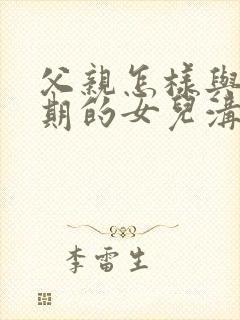 父親怎樣與
期的女兒溝
李雷生